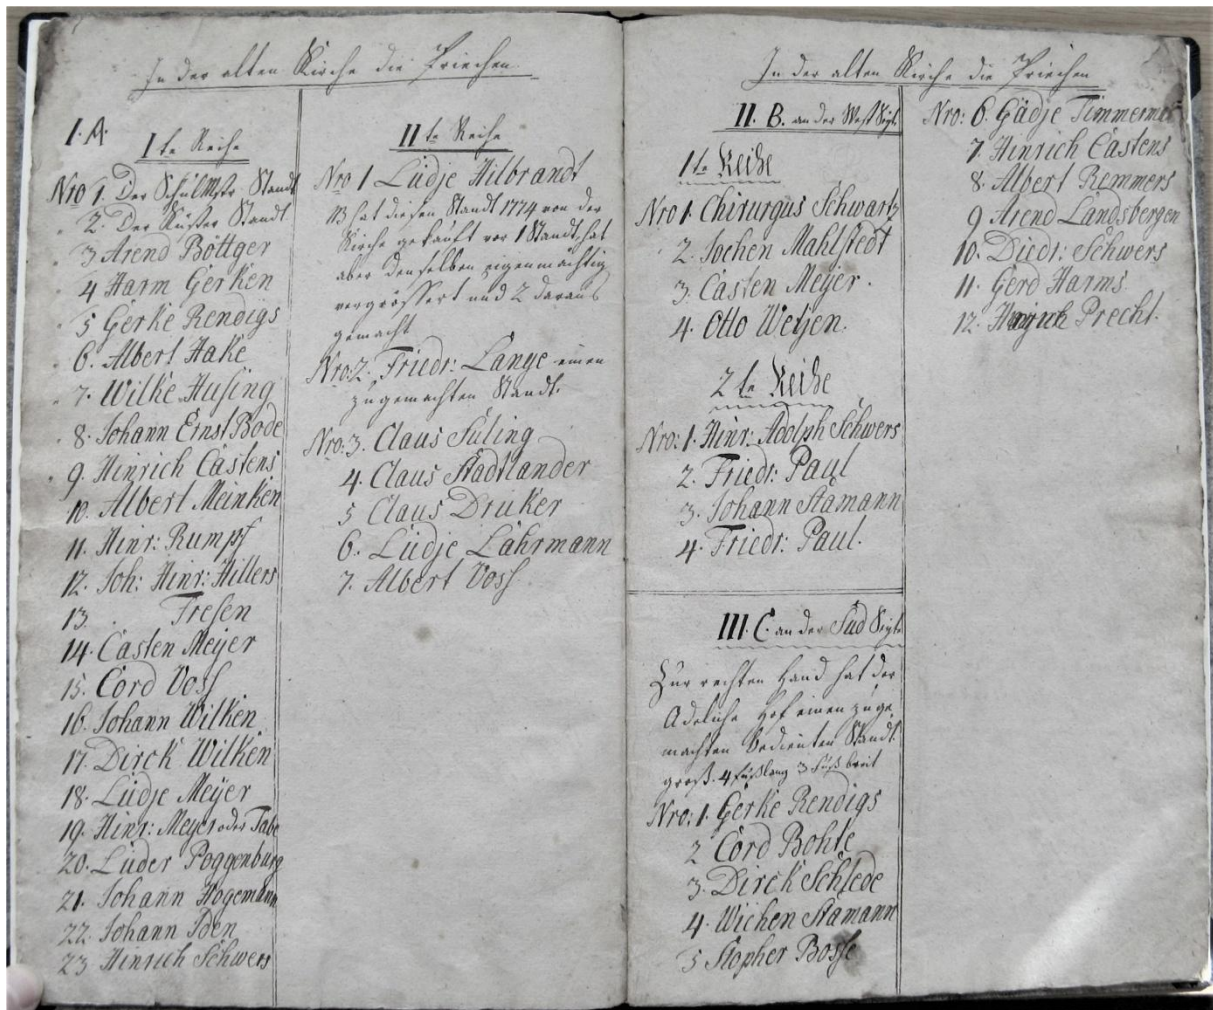 In der alten Kirche die Priechen
I. A.
Ite Reihe
Nro 1. Der Schulmstr. Standt
2. Der Küster Standt
3 Arend Böttger
4 Harm Gerken
5 Gerke Rendigs
6. Albert Hake
7. Wilke Husing
8. Johann Ernst Bode
9. Hinrich Castens
10. Albert Meinken
11. Hinr: Rumpf
12. Joh: Hinr: Hillers
13. Fresen
14. Casten Meÿer
15. Cord Voss
16. Johann Wilken
17. Dirck Wilken
18. Lüdje Meÿer
19. Hinr: Meÿer oder Tabe
20. Lüder Poggenburg
21. Johann Hogemann
22. Johann Iden
23 Hinrich Schwers
IIte Reihe
Nro 1 Lüdje Hilbrandt
NB hat diesen Standt 1774 von der
Kirche gekauft vor 1 Standt, hat
aber denselben eigenmächtig
vergrössert und 2 daraus
gemacht
Nro: 2. Friedr: Lange einen
zugemachten Standt.
Nro: 3. Claus Suling
4. Claus Stadtlander
5 Claus Drüker
6. Lüdje Lahrmann
7. Albert Voss
In der alten Kirche die Priechen
II. B. an der West Seyte
1te Reihe
Nro 1. Chirurgus Schwartz
2. Jochen Mahlstedt
3. Casten Meÿer.
4. Otto Wetjen.
2te Reihe
Nro: 1. Hinr: Adolph Schwers
2. Friedr: Paul
3. Johann Stamann
4. Friedr: Paul.
III. C. an der Süd Seyte
Zur rechten Hand hat der
Adeliche Hof einen zuge
machten Bedienten Standt.
groß. 4 Fuß lang 3 Fuß breit
Nro: 1. Gerke Rendigs
2 Cord Bohte
3. Dirck Schlede
4. Wichen Stamann
5 Stopher Bosse
Nro: 6. Gädje Timmerman
7. Hinrich Castens
8. Albert Remmers
9 Arend Landsbergen
10. Diedr: Schwers
11. Gerd Harms
12. Precht.